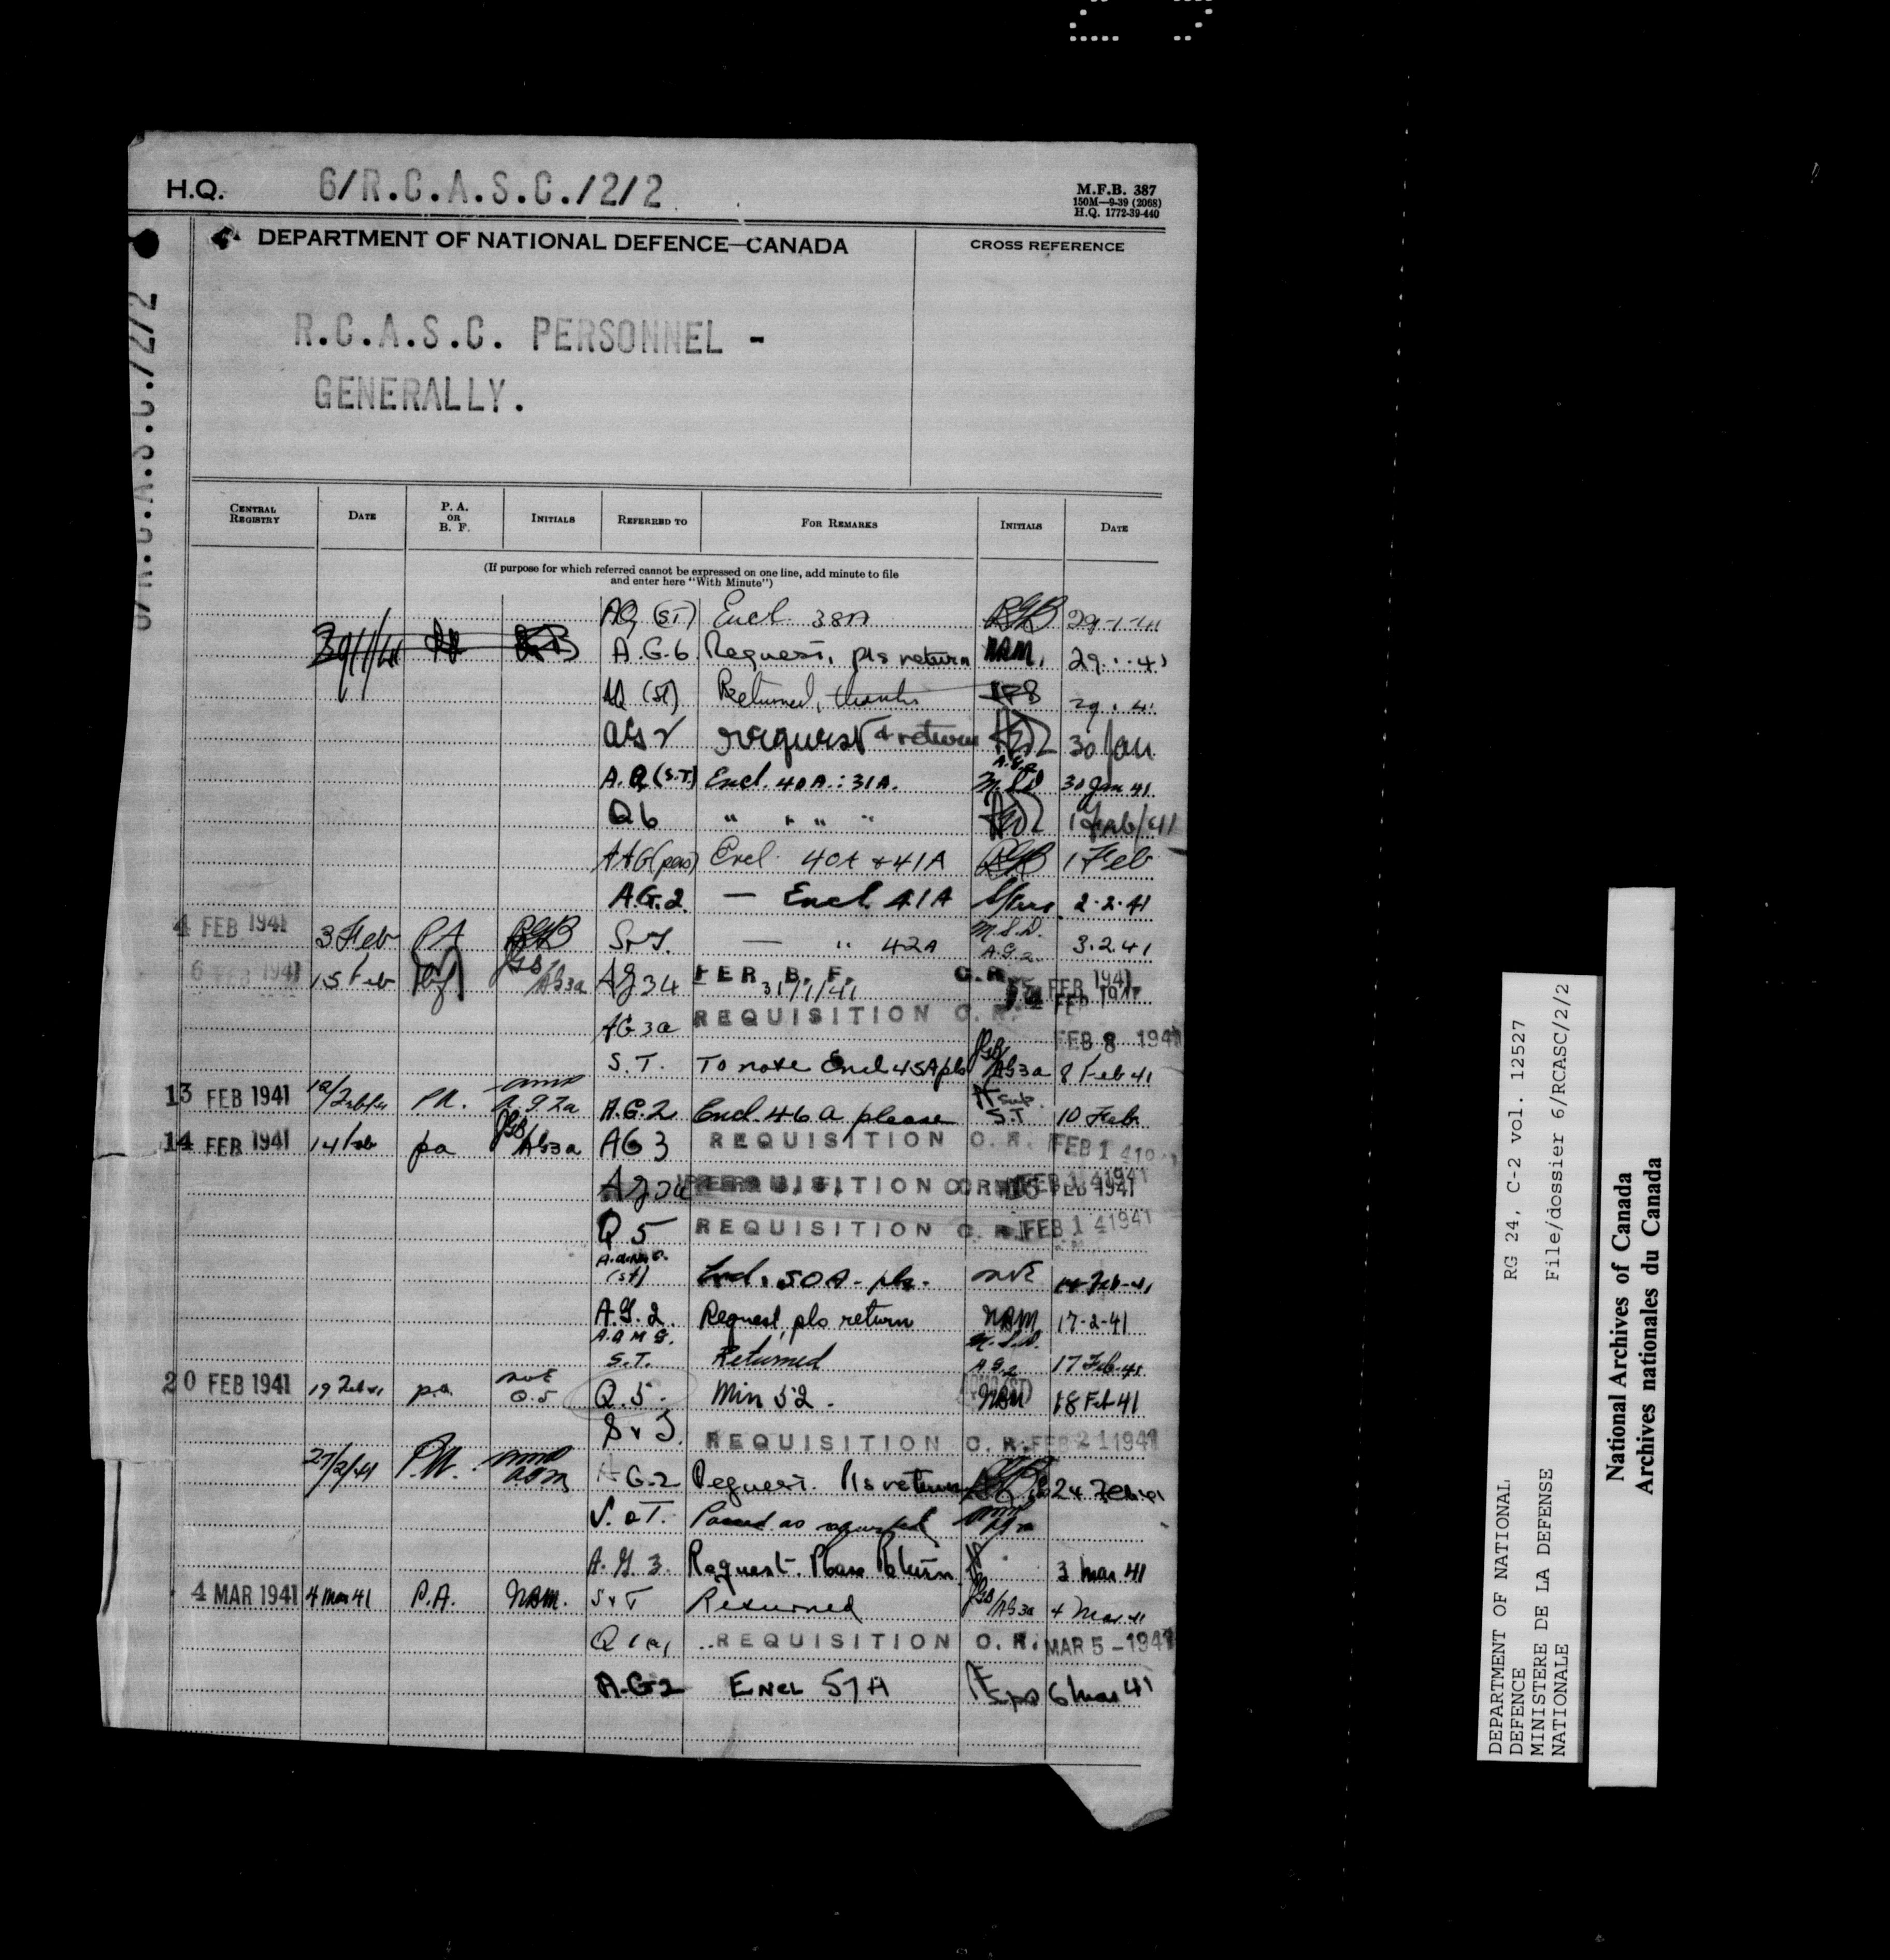 H.Q. 6/R.C.A.S.C./2/2
M.F.B. 387
150M—9-39 (2068)
H.Q. 1772-39-440
DEPARTMENT OF NATIONAL DEFENCE—CANADA
CROSS REFERENCE
R.C.A.S.C. PERSONNEL -
GENERALLY.
CENTRAL REGISTRY DATE P. A. OR B. F. INITIALS REFERRED TO FOR REMARKS INITIALS DATE
(If purpose for which referred cannot be expressed on one line, add minute to file
and enter here "With Minute")
AQ (ST) Encl. 38A 29-1-41
A.G.6 Request, pls return NAM. 29.1.41
AQ (ST) Returned, thanks
AG2 request & return 30 Jan
A.Q (S.T.) Encl. 40A.: 31A. M.S.D. A.G.2 30 Jan 41
Q6 " " " " 1 Feb/41
AAG (pers) Encl. 40A & 41A 1 Feb
A.G.2. — Encl. 41A 2.2.41
4 FEB 1941 3 Feb PA S&T. — " 42A M.S.D. A.G.2. 3.2.41
6 FEB 1941 15 Feb AG3a PER B. F. 31/1/41 C.R. FEB 1941
AG3a REQUISITION C. R. FEB 8 1941
S.T. To note Encl 45A pls AG3a 8 Feb 41
13 FEB 1941 PA. A.G.2a A.G.2 Encl. 46A please S.T 10 Feb
14 FEB 1941 14 Feb pa AG3a AG3 REQUISITION C. R. FEB 14 1941
REQUISITION FEB 14 1941
Q5 REQUISITION C. R. FEB 14 1941
(ST) Encl. 50A - pls. 14-Feb-41
A.G.2. Request, pls return NAM 17-2-41
A.Q.M.G. S.T. Returned M.S.D. A.G.2 17 Feb 41
20 FEB 1941 19 Feb 41 p.a. Q.5 Q.5. Min 52. NAM 18 Feb 41
S&T. REQUISITION C. R. FEB 21 1941
27/2/41 P.A. A.G.2 Request. Pls return 24 Feb 41
S.&T. Passed as requested
A.G.3. Request. Please Return. 3 Mar 41
4 MAR 1941 4 Mar 41 P.A. NAM. S&T Returned AG3a 4 Mar 41
REQUISITION C. R. MAR 5 - 1941
A.G.2 ENCL 57A 6 Mar 41
DEPARTMENT OF NATIONAL
DEFENCE
MINISTERE DE LA DEFENSE
NATIONALE
RG 24, C-2 vol. 12527
File/dossier 6/RCASC/2/2
National Archives of Canada
Archives nationales du Canada